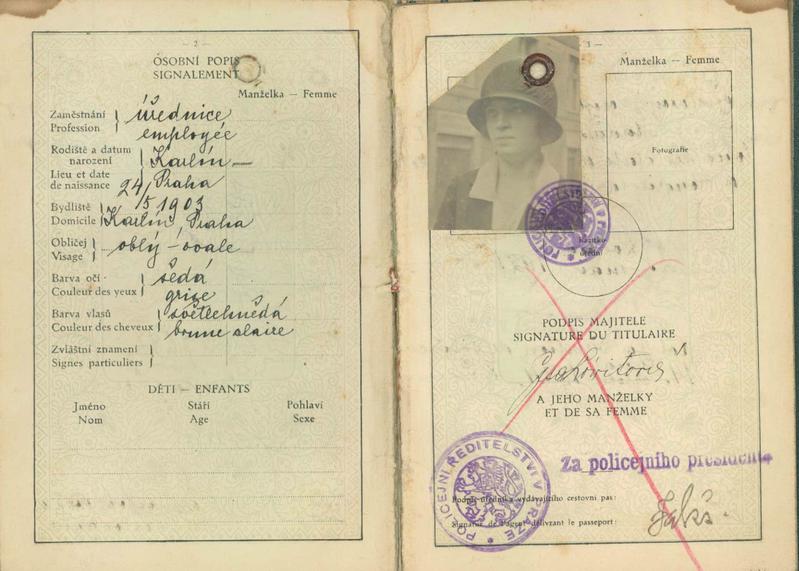 — 2 —
OSOBNÍ POPIS
SIGNALEMENT
Manželka — Femme
Zaměstnání
Profession
úřednice
employée
Rodiště a datum
narození
Lieu et date
de naissance
Karlín —
Praha
24/5 1903
Bydliště
Domicile
Karlín Praha
Obličej
Visage
oblý - ovale
Barva očí
Couleur des yeux
šedá
grize
Barva vlasů
Couleur des cheveux
světlehnědá
brune claire
Zvláštní znamení
Signes particuliers
DĚTI — ENFANTS
Jméno Stáří Pohlaví
Nom Age Sexe
3 —
Manželka — Femme
Fotografie
POLICEJNÍ ŘEDITELSTVÍ V PRAZE
Razítko
úřední
PODPIS MAJITELE
SIGNATURE DU TITULAIRE
A JEHO MANŽELKY
ET DE SA FEMME
Za policejního presidenta
POLICEJNÍ ŘEDITELSTVÍ V PRAZE
Podpis úředníka vydávajícího cestovní pas:
Signatur de l'agent délivrant le passeport: